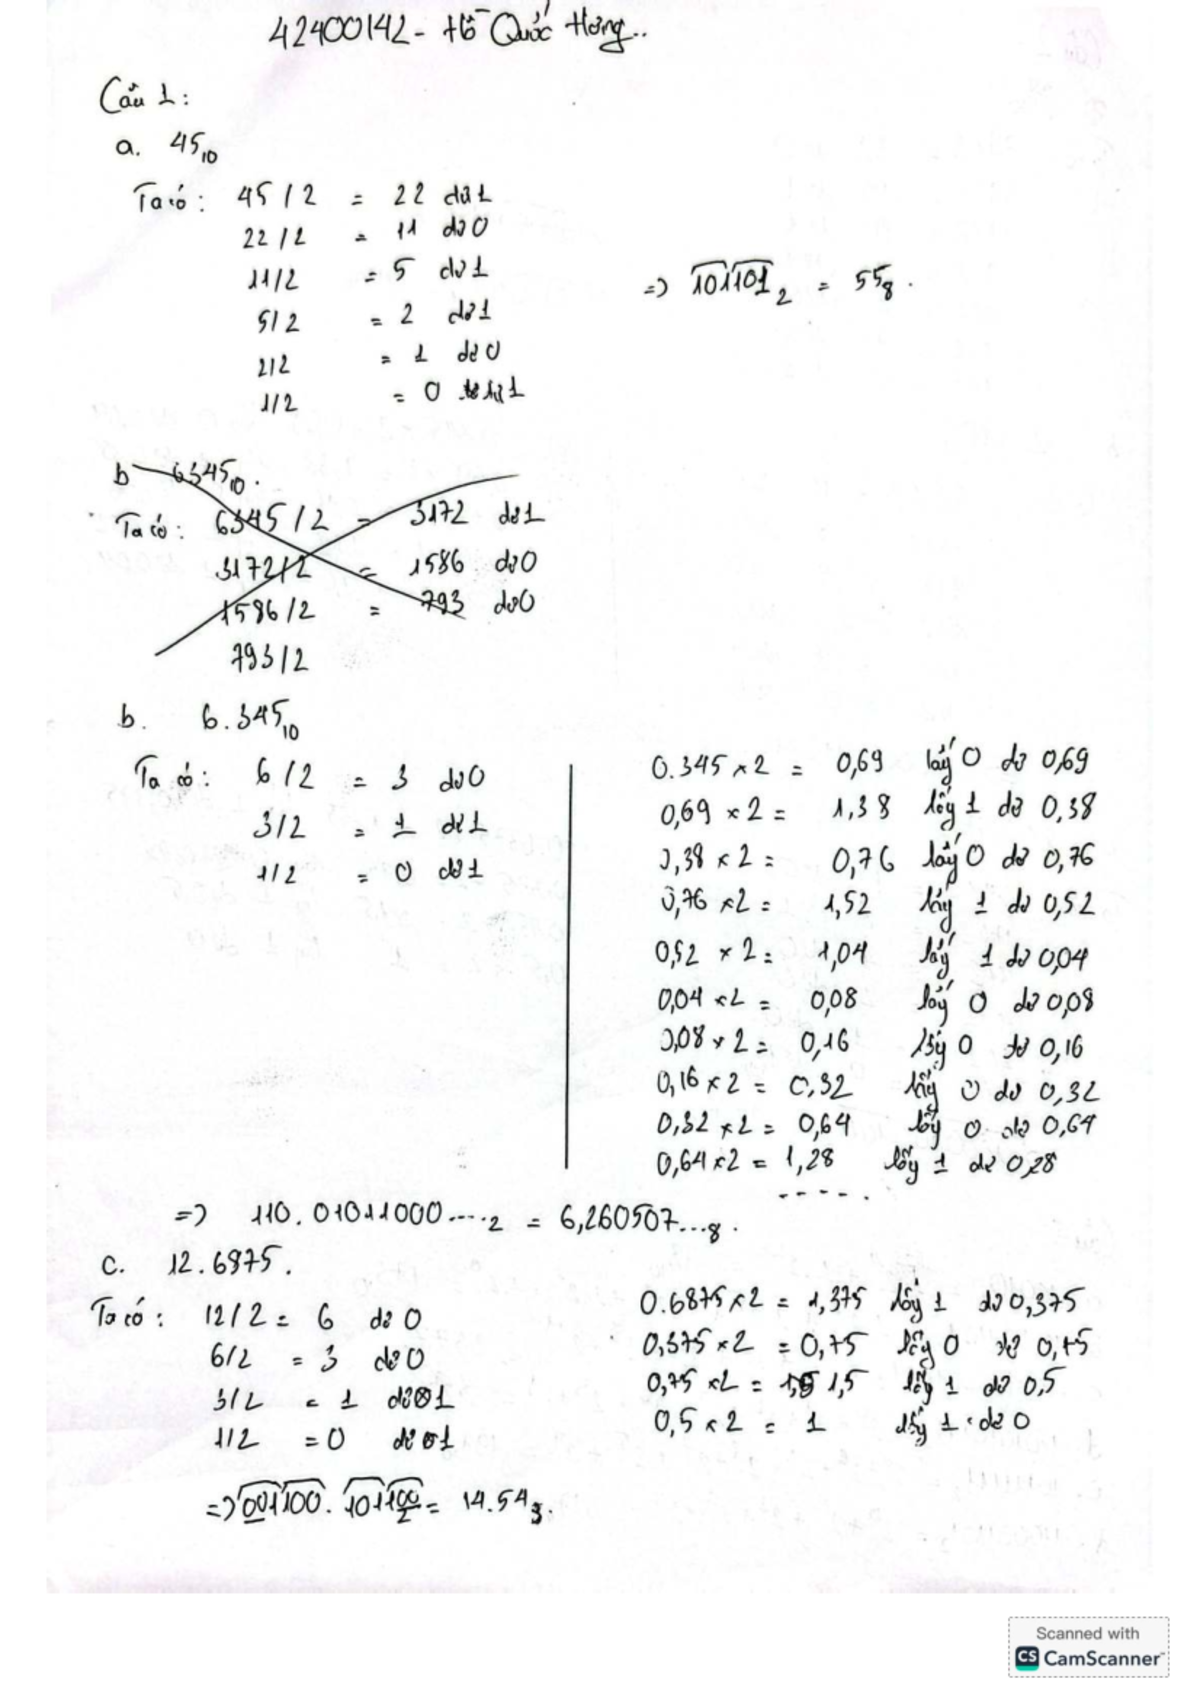 42400142 - Hồ Quốc Hưng..
Câu 1:
a. 45₁₀
Ta có: 45 / 2 = 22 dư 1
22 / 2 = 11 dư 0
11/2 = 5 dư 1
5/2 = 2 dư 1
2/2 = 1 dư 0
1/2 = 0 dư 1
=> 101101₂ = 55₈.
b 6345₁₀.
Ta có: 6345 / 2 = 3172 dư 1
3172/2 = 1586 dư 0
1586/2 = 793 dư 0
793/2
b. 6.345₁₀
Ta có: 6 / 2 = 3 dư 0
3/2 = 1 dư 1
1/2 = 0 dư 1
0.345 x 2 = 0,69 lấy 0 dư 0,69
0,69 x 2 = 1,38 lấy 1 dư 0,38
0,38 x 2 = 0,76 lấy 0 dư 0,76
0,76 x 2 = 1,52 lấy 1 dư 0,52
0,52 x 2 = 1,04 lấy 1 dư 0,04
0,04 x 2 = 0,08 lấy 0 dư 0,08
0,08 x 2 = 0,16 lấy 0 dư 0,16
0,16 x 2 = 0,32 lấy 0 dư 0,32
0,32 x 2 = 0,64 lấy 0 dư 0,64
0,64 x 2 = 1,28 lấy 1 dư 0,28
.....
=> 110.01011000....₂ = 6,260507...₈.
c. 12.6875.
Ta có: 12/2 = 6 dư 0
6/2 = 3 dư 0
3/2 = 1 dư 1
1/2 = 0 dư 1
0.6875 x 2 = 1,375 lấy 1 dư 0,375
0,375 x 2 = 0,75 lấy 0 dư 0,75
0,75 x 2 = 1,5 lấy 1 dư 0,5
0,5 x 2 = 1 lấy 1 dư 0
=> 001100.101100₂ = 14.54₈.
Scanned with
CS CamScanner